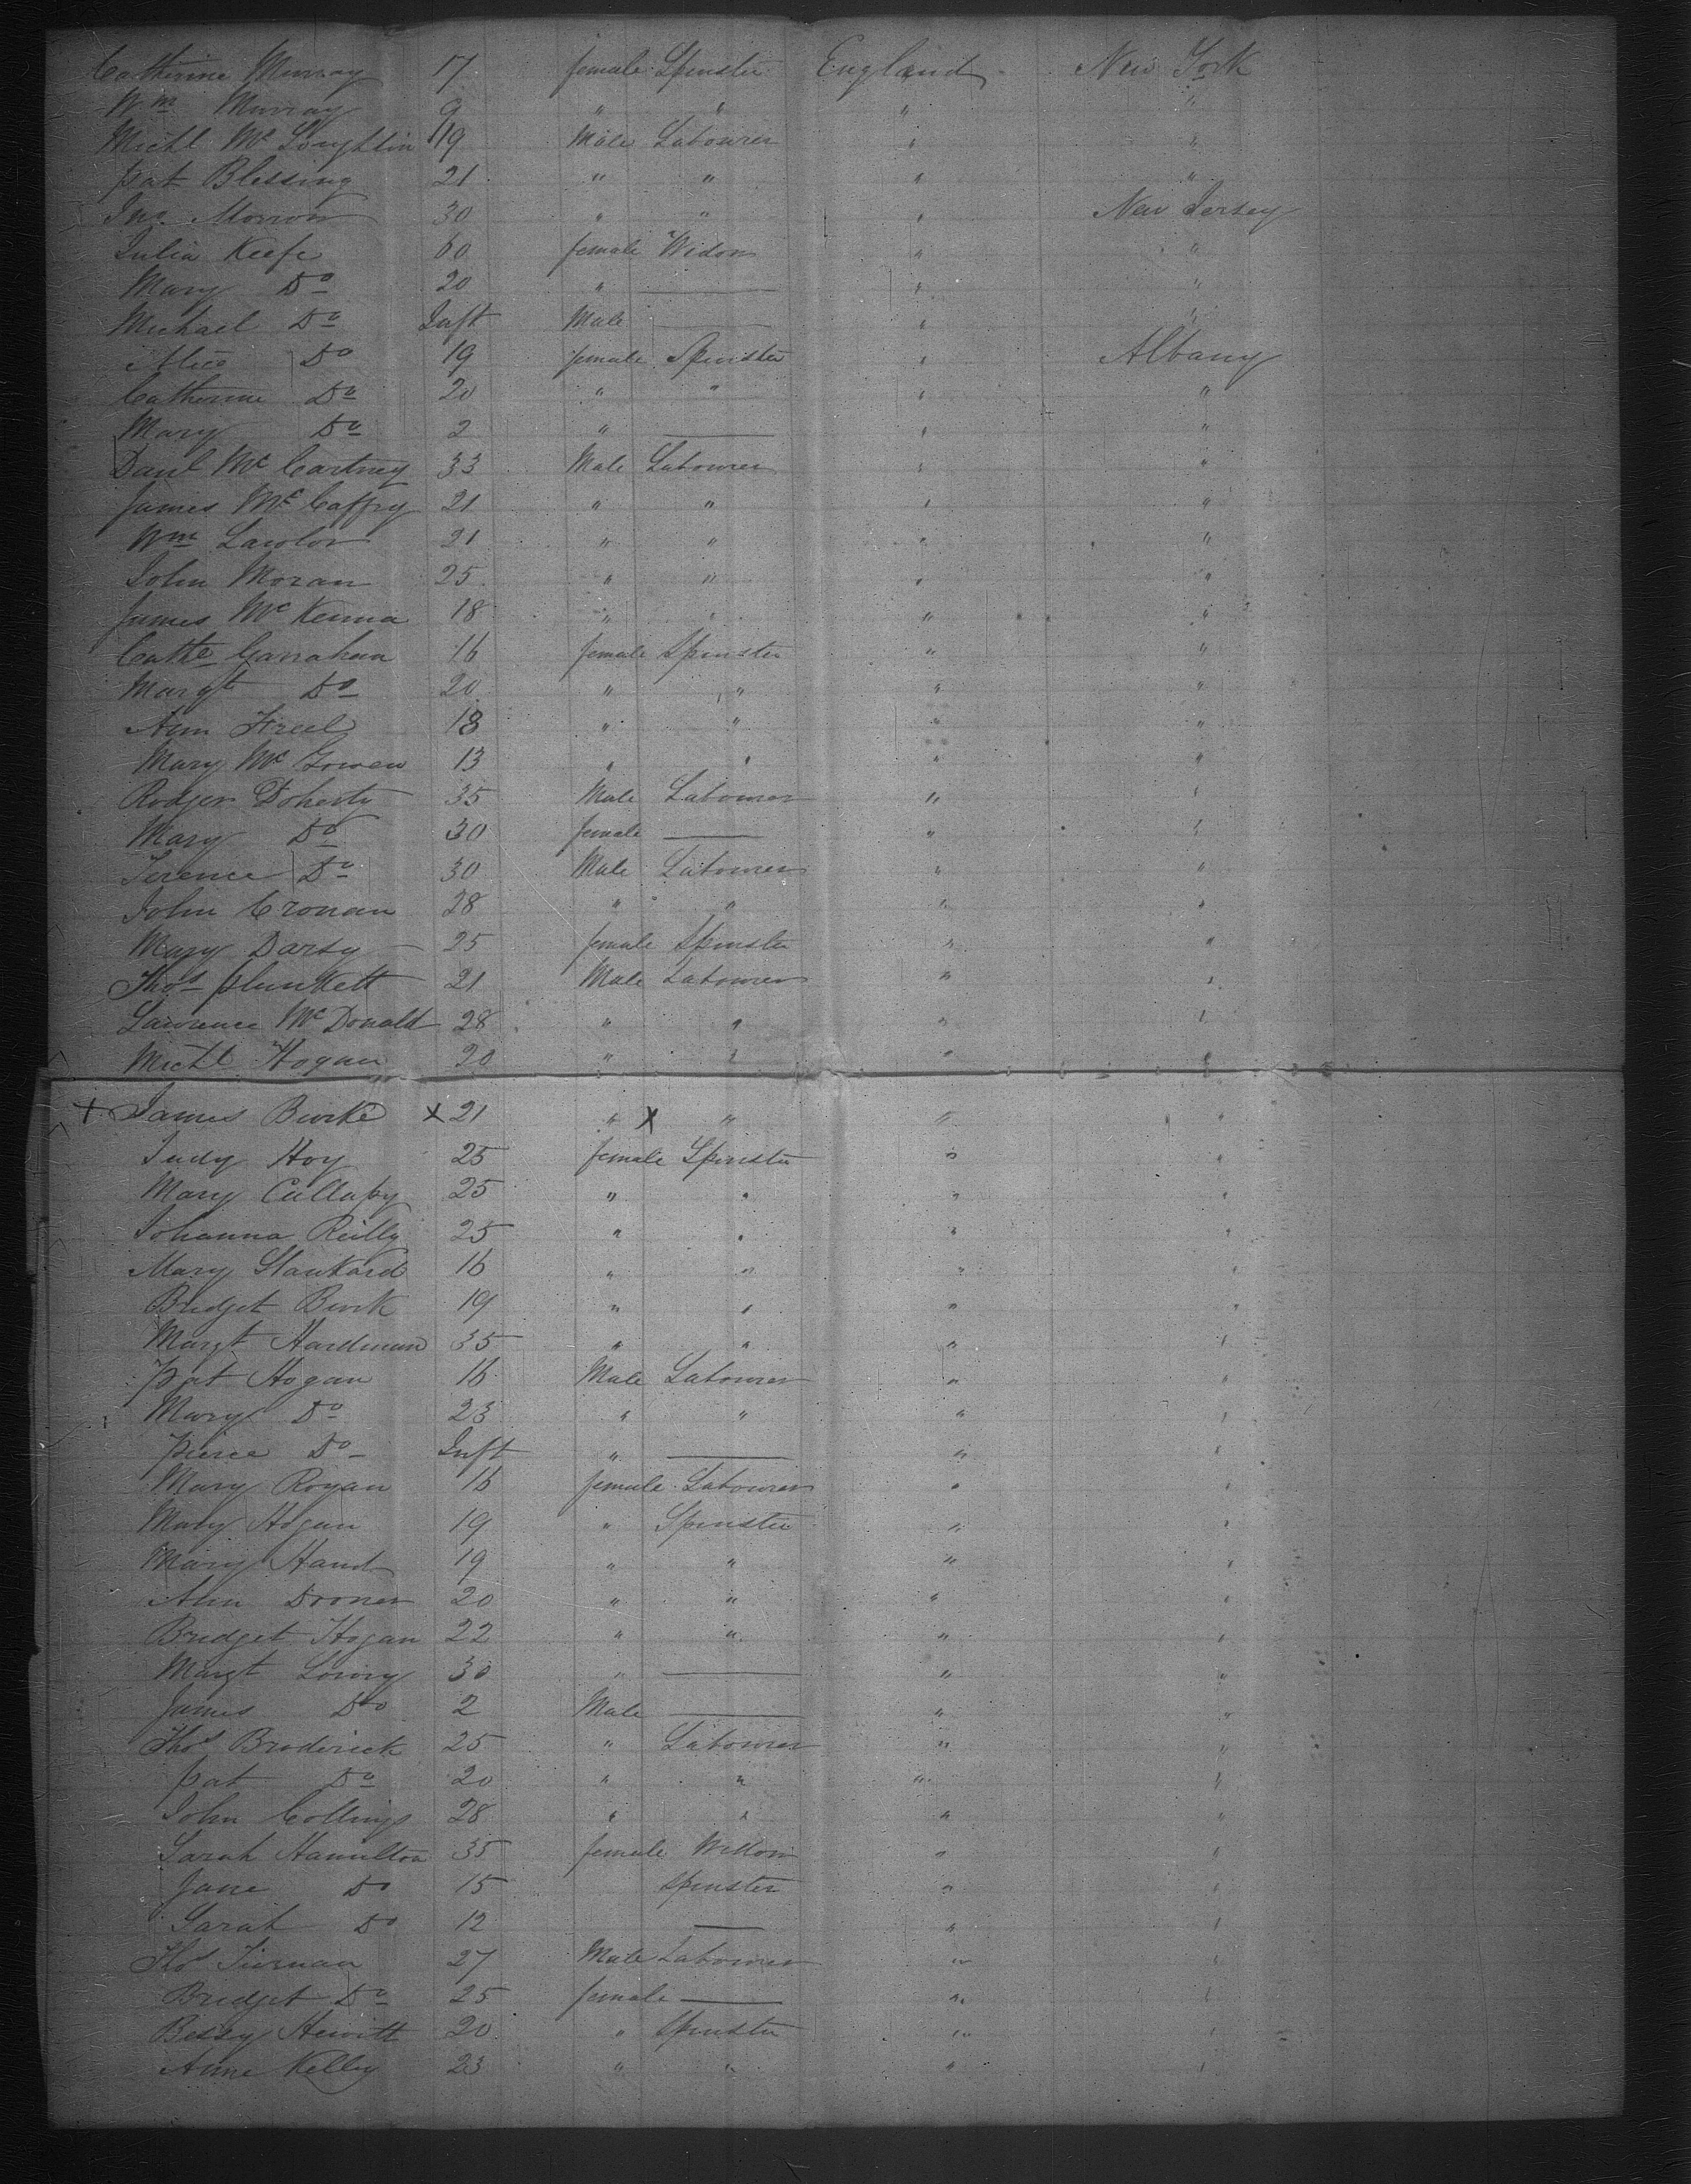 Catherine Murray 17 female Spinster England New York
Wm Murray 9 " " " "
Michl Mc Loughlin 19 Male Labourer " "
Pat Blessing 21 " " " "
Jno. Morrow 30 " " " New Jersey
Julia Keefe 60 female Widow " "
Mary Do 20 " — " "
Michael Do Inft Male — " "
Alice Do 19 female Spinster " Albany
Catherine Do 20 " " " "
Mary Do 2 " — " "
Danl Mc Cartney 33 Male Labourer " "
James Mc Caffry 21 " " " "
Wm Lawlor 21 " " " "
John Moran 25 " " " "
James Mc Kenna 18 " " " "
Cathe Ganahan 16 female Spinster " "
Margt Do 20 " " " "
Ann Freel 18 " " " "
Mary Mc Gowen 13 " " " "
Rodger Doherty 35 Male Labourer " "
Mary Do 30 female — " "
Terence Do 30 Male Labourer " "
John Cronan 28 " " " "
Mary Darsy 25 female Spinster " "
Thos Plunkett 21 Male Labourer " "
Lawrence Mc Donald 28 " " " "
Michl Hogan 20 " " " "
x James Burke x 21 " x " " "
Judy Hoy 25 female Spinster " "
Mary 25 " " " "
Johanna Reilly 25 " " " "
Mary Stankard 16 " " " "
Bridget Burk 19 " " " "
Margt Hardman 35 " " " "
Pat Hogan 16 Male Labourer " "
Mary Do 23 " " " "
Pierce Do Inft " — " "
Mary Rogan 16 female Labourer " "
Mary Hogan 19 " Spinster " "
Mary Hand 19 " " " "
Ann Drones 20 " " " "
Bridget Hogan 22 " " " "
Margt Lowry 30 " — " "
James Do 2 Male — " "
Thos Broderick 25 " Labourer " "
Pat Do 20 " " " "
John Collings 28 " " " "
Sarah Hamilton 35 female Widow " "
Jane Do 15 Spinster " "
Sarah Do 12 — " "
Thos Tiernan 27 Male Labourer " "
Bridget Do 25 female — " "
Bessy Hewitt 20 " Spinster " "
Anne Kelly 23 " " " "